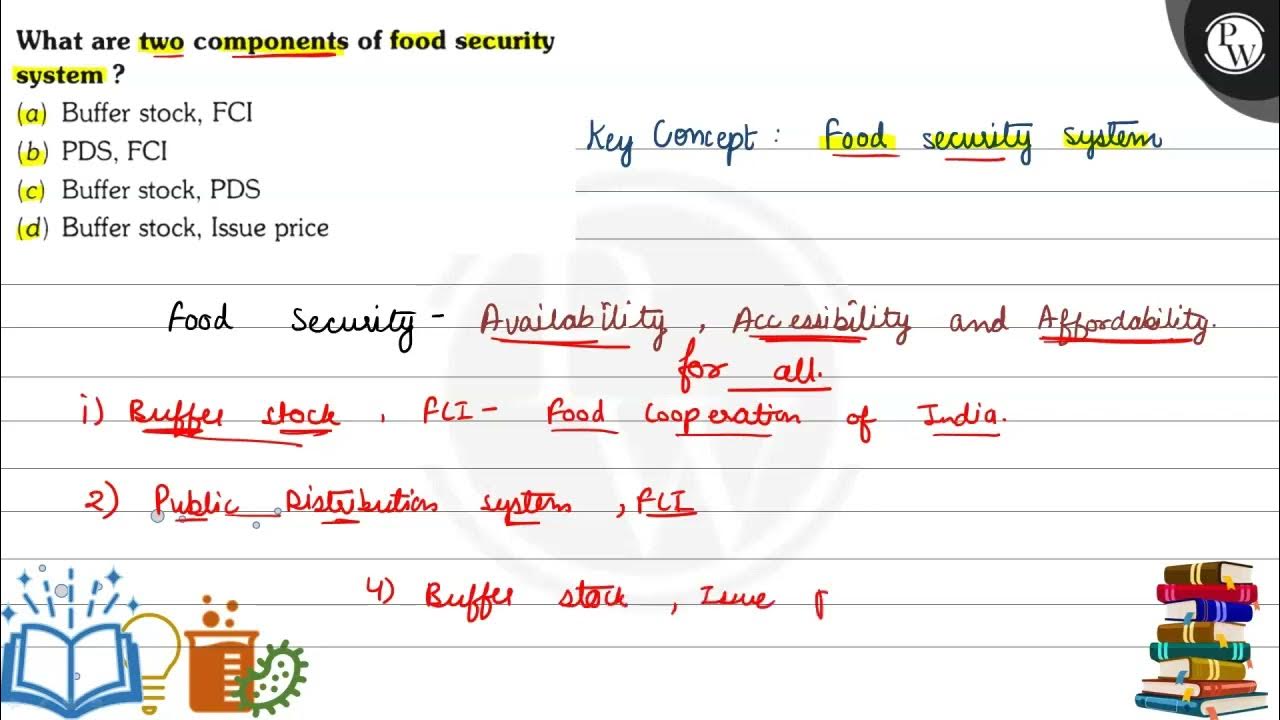 What are two components of food security
system ?
(a) Buffer stock, FCI
(b) PDS, FCI
(c) Buffer stock, PDS
(d) Buffer stock, Issue price
PW
Key Concept : Food security system
Food Security - Availability , Accessibility and Affordability.
for all.
i) Buffer stock , FCI - Food Cooperation of India.
2) Public Distribution system , FCI
4) Buffer stock , Issue p